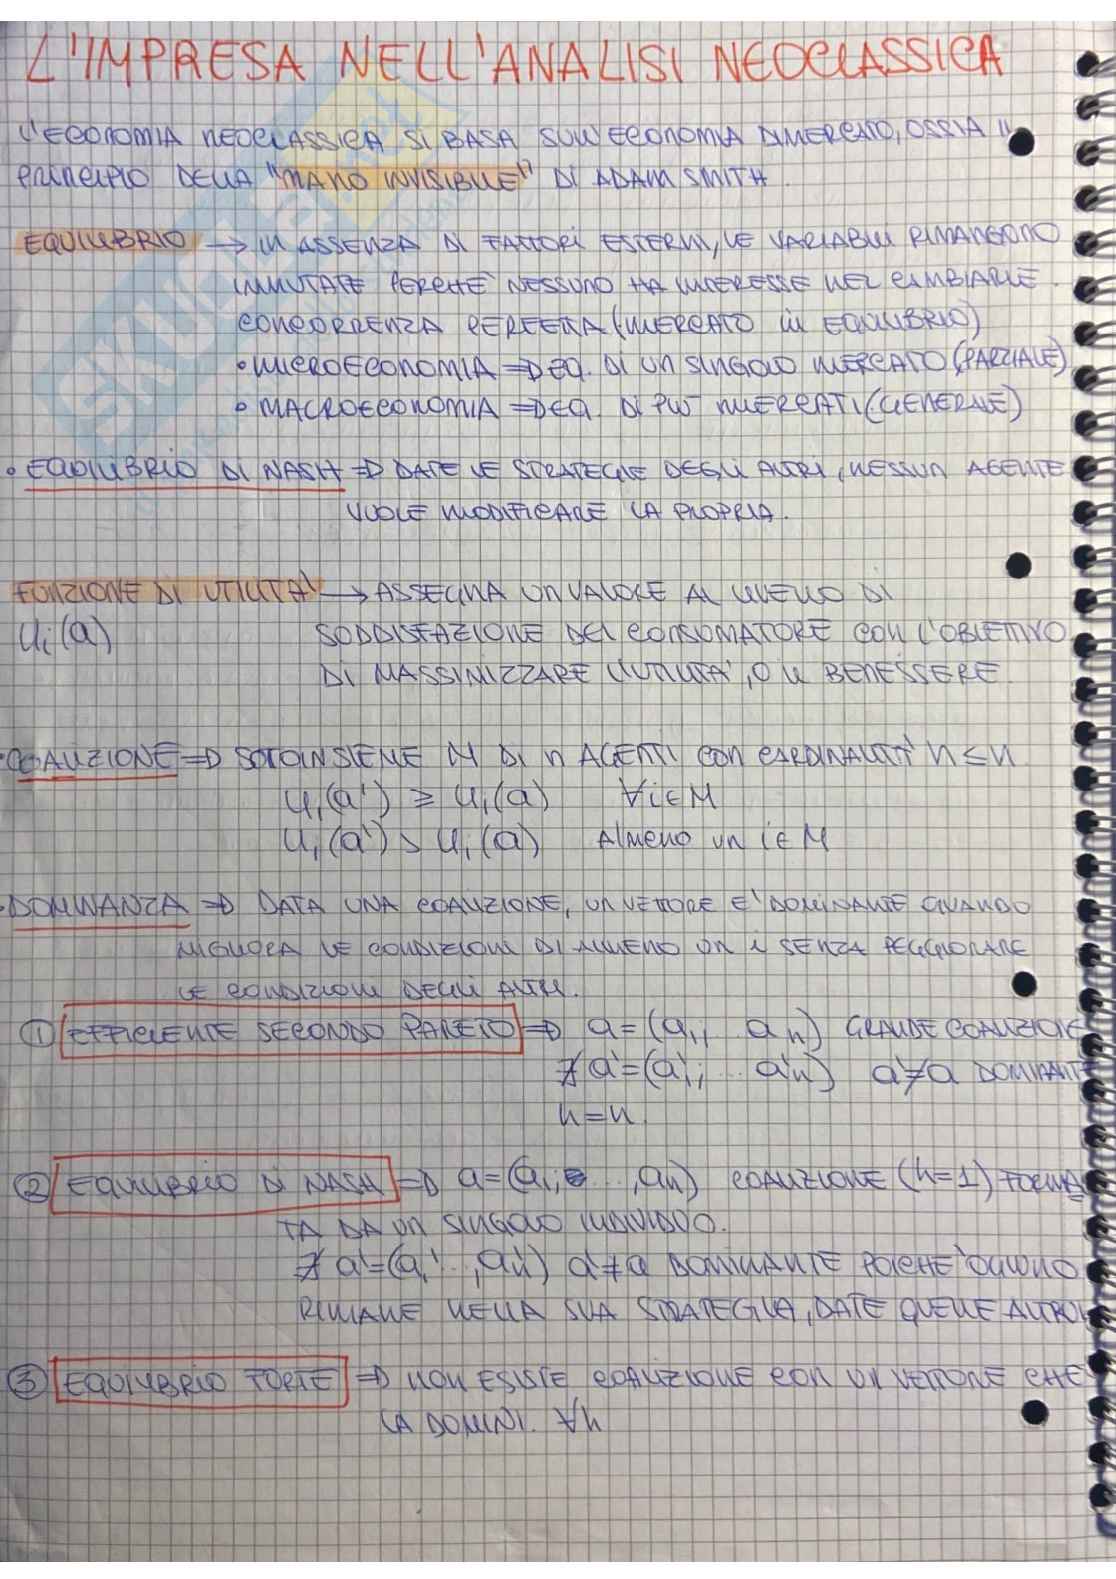 L'IMPRESA NELL'ANALISI NEOCLASSICA
L'ECONOMIA NEOCLASSICA SI BASA SULL'ECONOMIA DI MERCATO, OSSIA IL
PRINCIPIO DELLA "MANO INVISIBILE" DI ADAM SMITH.
EQUILIBRIO → IN ASSENZA DI FATTORI ESTERNI, LE VARIABILI RIMANGONO
IMMUTATE PERCHÉ NESSUNO HA INTERESSE NEL CAMBIARLE.
CONCORRENZA PERFETTA (MERCATO IN EQUILIBRIO)
• MICROECONOMIA ⇒ EQ. DI UN SINGOLO MERCATO (PARZIALE)
• MACROECONOMIA ⇒ EQ. DI PIU' MERCATI (GENERALE)
• EQUILIBRIO DI NASH ⇒ DATE LE STRATEGIE DEGLI ALTRI, NESSUN AGENTE
VUOLE MODIFICARE LA PROPRIA.
FUNZIONE DI UTILITA' → ASSEGNA UN VALORE AL LIVELLO DI
Ui(a) SODDISFAZIONE DEL CONSUMATORE CON L'OBIETTIVO
DI MASSIMIZZARE L'UTILITA', O IL BENESSERE.
• COALIZIONE ⇒ SOTOINSIEME M DI n AGENTI CON CARDINALITA' h ≤ n
Ui(a') ≥ Ui(a) ∀i∈M
Ui(a') > Ui(a) ALMENO UN i∈M
• DOMINANZA ⇒ DATA UNA COALIZIONE, UN VETTORE E' DOMINANTE QUANDO
MIGLIORA LE CONDIZIONI DI ALMENO UN i SENZA PEGGIORARE
LE CONDIZIONI DEGLI ALTRI.
① EFFICIENTE SECONDO PARETO ⇒ a=(a1, an) GRANDE COALIZIONE
∄ a'=(a'1; ... a'n) a'≠a DOMINANTE
h=n.
② EQUILIBRIO DI NASH ⇒ a=(a1; ..., an) COALIZIONE (h=1) FORMA
TA DA UN SINGOLO INDIVIDUO.
∄ a'=(a1' ..., an') a'≠a DOMINANTE POICHE' OGNUNO
RIMANE NELLA SUA STRATEGIA, DATE QUELLE ALTRUI
③ EQUILIBRIO FORTE ⇒ NON ESISTE COALIZIONE CON UN VETTORE CHE
LA DOMINI. ∀h